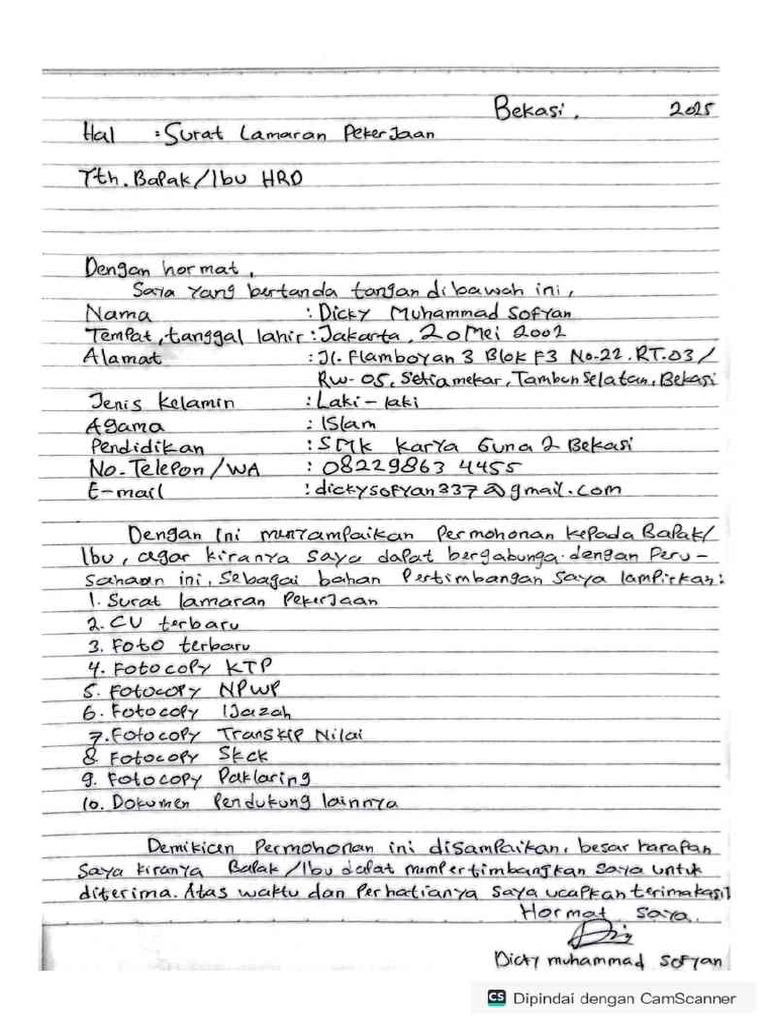 Bekasi, 2025
Hal : Surat Lamaran Pekerjaan
Yth. Bapak/Ibu HRD
Dengan hormat,
Saya yang bertanda tangan dibawah ini,
Nama : Dicky Muhammad Sofyan
Tempat, tanggal lahir : Jakarta, 20 Mei 2002
Alamat : Jl. Flamboyan 3 Blok F3 No.22. RT.03/
RW-05, Setiamekar, Tambun Selatan, Bekasi
Jenis Kelamin : Laki-laki
Agama : Islam
Pendidikan : SMK Karya Guna 2 Bekasi
No. Telepon/WA : 08229863 4455
E-mail : dickysofyan337@gmail.com
Dengan Ini menyampaikan Permohonan kepada Bapak/
Ibu, agar kiranya saya dapat bergabunga dengan Peru-
sahaan ini, sebagai bahan Pertimbangan saya lampirkan:
1. Surat lamaran Pekerjaan
2. CV terbaru
3. Foto terbaru
4. Fotocopy KTP
5. Fotocopy NPWP
6. Fotocopy Ijazah
7. Fotocopy Transkip Nilai
8. Fotocopy Skck
9. Fotocopy Paklaring
10. Dokumen Pendukung lainnya
Demikian Permohonan ini disampaikan, besar harapan
saya kiranya Bapak/Ibu dapat mempertimbangkan saya untuk
diterima. Atas waktu dan Perhatianya saya ucapkan terimakasih
Hormat saya.
Dicky muhammad Sofyan
CS Dipindai dengan CamScanner